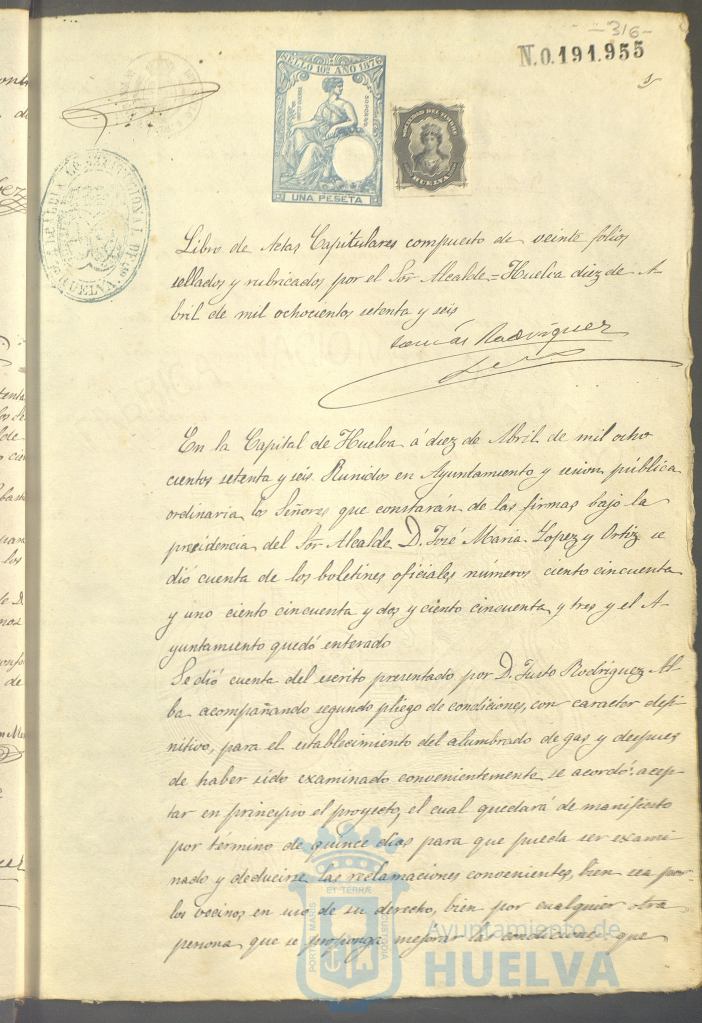 -316-
N.0.191.955
SELLO 10º AÑO 1876
UNA PESETA
HUELVA
Libro de Actas Capitulares compuesto de veinte folios
sellados y rubricados por el Sor Alcalde = Huelva diez de A-
bril de mil ochocientos setenta y seis
Tomás Rodriguez
En la Capital de Huelva á diez de Abril de mil ocho
cientos setenta y seis Runidos en Ayuntamiento y sesion pública
ordinaria los Señores que constarán de las firmas bajo la
presidencia del Sor Alcalde D. José Maria Lopez y Ortiz se
dió cuenta de los boletines oficiales números ciento cincuenta
y uno ciento cincuenta y dos y ciento cincuenta y tres y el A-
yuntamiento quedó enterado
Se dió cuenta del escrito presentado por D. Justo Rodriguez Al
ba acompañando segundo pliego de condiciones, con caracter defi-
nitivo, para el establecimiento del alumbrado de gas y despues
de haber sido examinado convenientemente se acordó: acep-
tar en principio el proyecto, el cual quedará de manifiesto
por término de quince dias para que pueda ser exami-
nado y deducirse las reclamaciones convenientes, bien sea por
los vecinos en uso de su derecho, bien por cualquier otra
persona que se proponga mejorar las condiciones que
PORTUS MARIS ET TERRÆ CUSTODIA
Ayuntamiento de
HUELVA